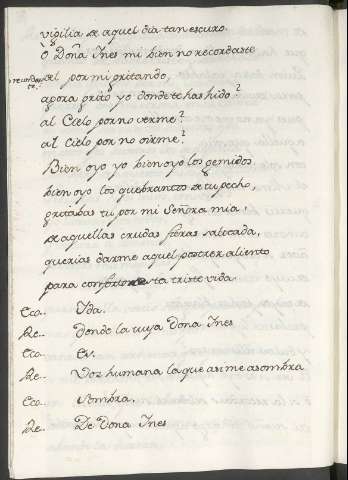 vigilia de aquel dia tan escuro.
O Doña Ines mi bien no recordaste
del por mi gritando,
agora grito yo donde te has hido?
al Cielo por no verme?
al Cielo por no oirme?
Bien oyo yo bien oyo los gemidos
bien oyo los quebrantos de tu pecho,
gritabas tu por mi Señora mia,
de aquellas crudas fieras salteada,
querias darme aquel postrer aliento
para conforto desta triste vida.
Eco. Yda.
Re. Donde la tuya Dona Ines
Eco. Es.
Re. Voz humana la que asi me asombra
Eco. Sombra.
Re. De Dona Ines